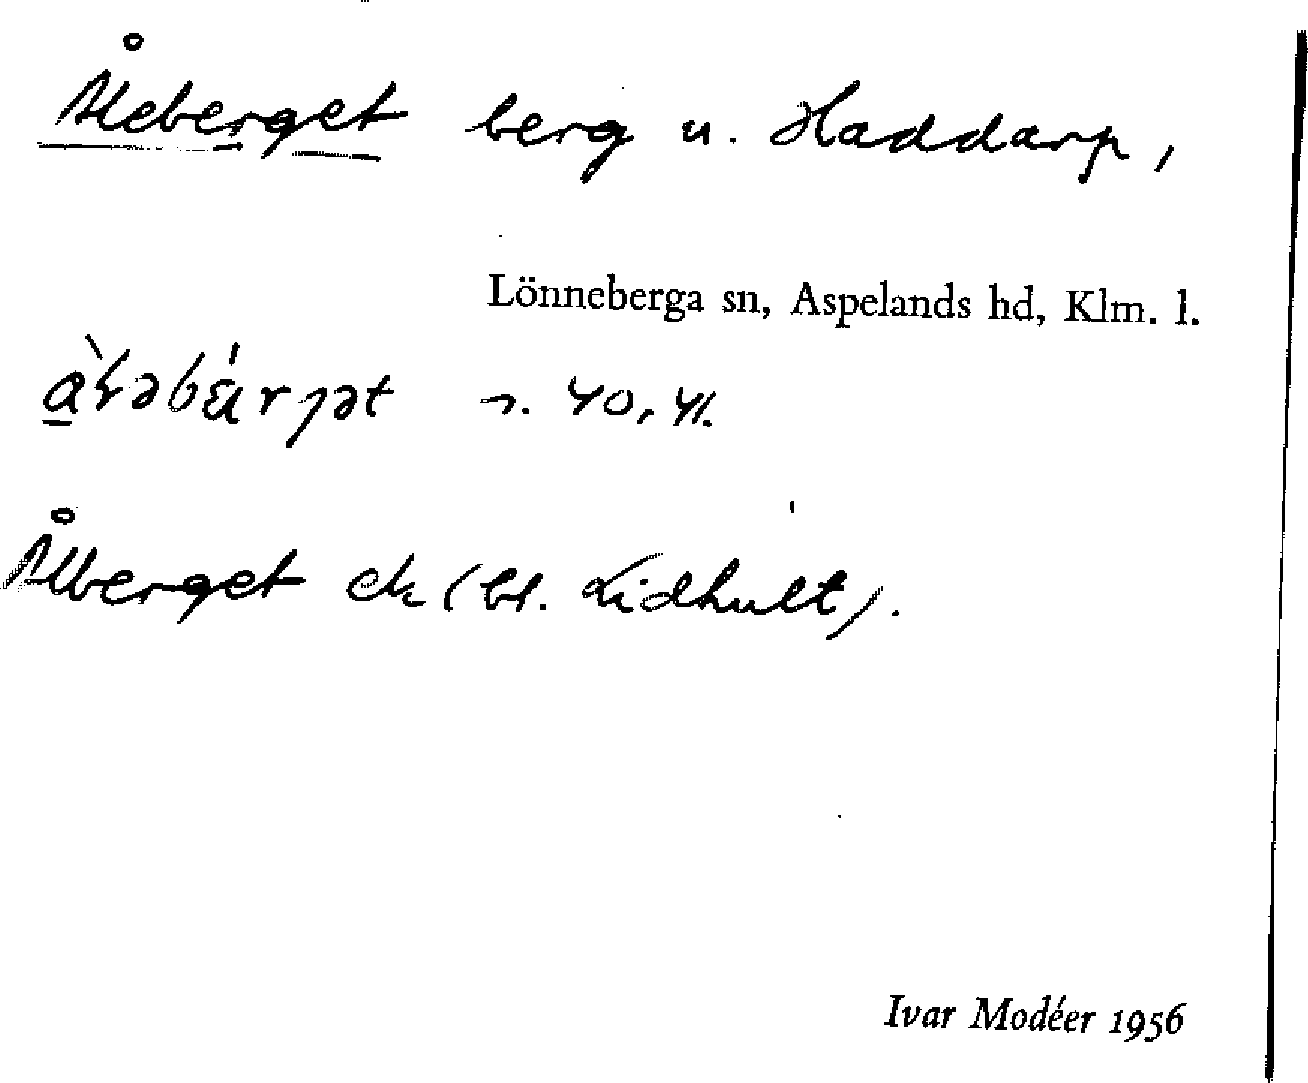 Åleberget berg u. Haddarp,
Lönneberga sn, Aspelands hd, Klm. l.
n. 40, 41.
Ålberget ek (bl. Lidhult).
Ivar Modéer 1956